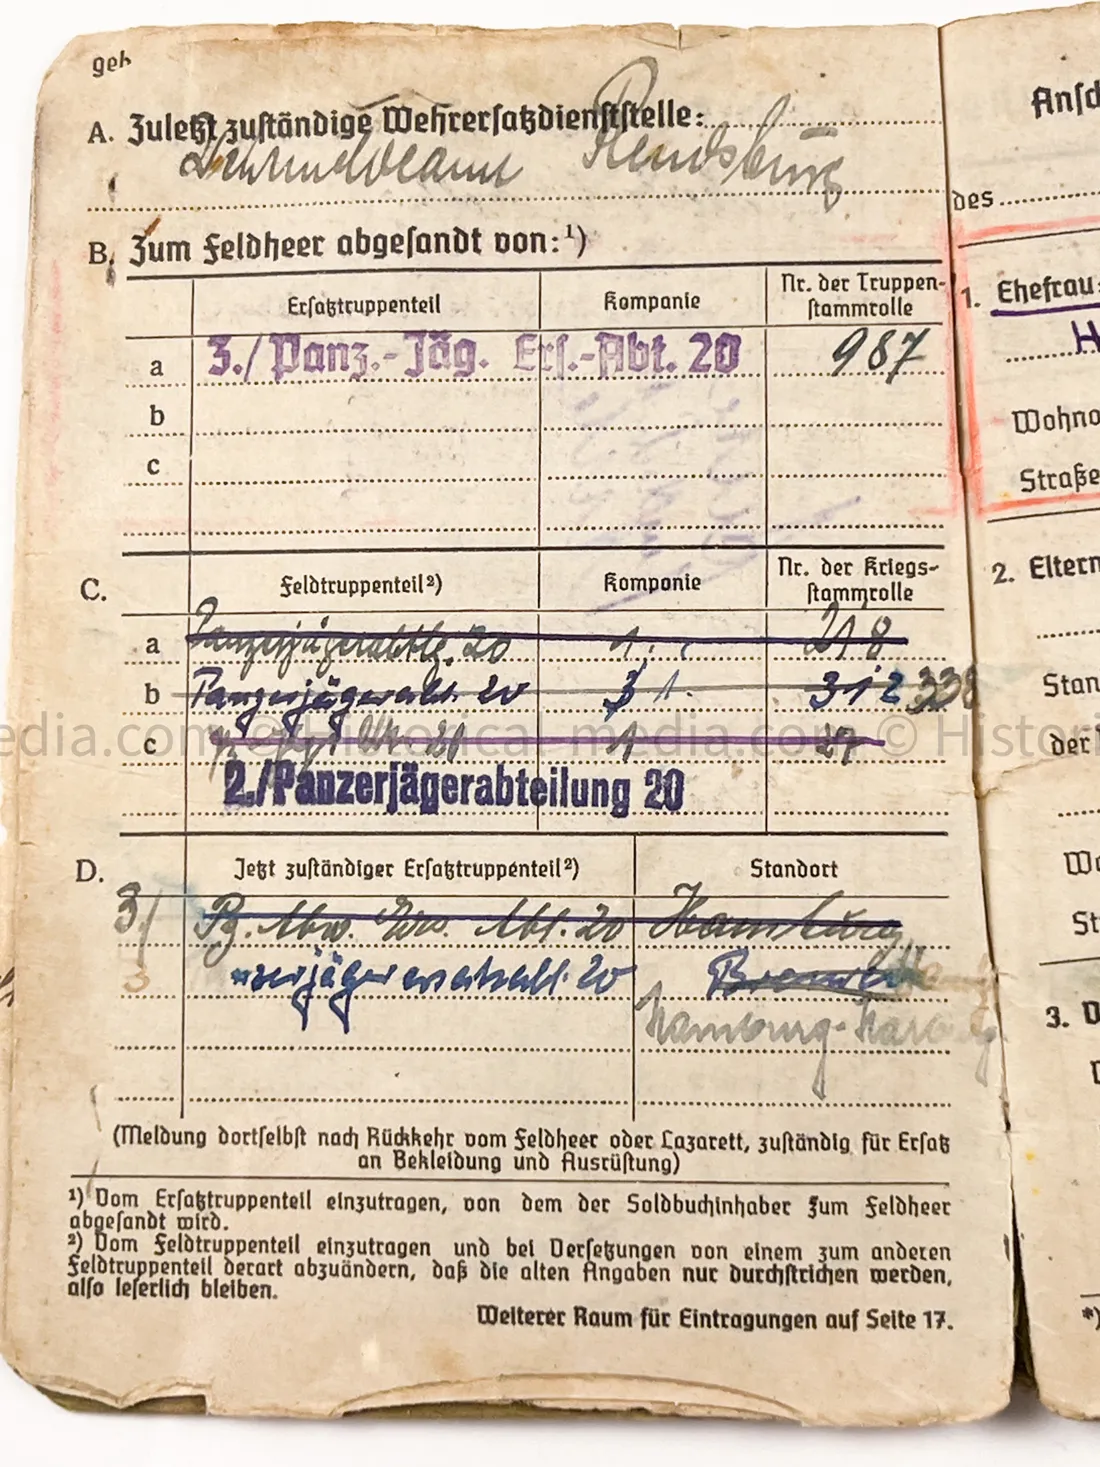 geh
A. Zuletzt zuständige Wehrersatzdienststelle:
Wehrmeldeamt Rendsburg
B. Zum Feldheer abgesandt von:¹)
Ersatztruppenteil Kompanie Nr. der Truppen-
stammrolle
a 3./Panz.-Jäg. Ers.-Abt. 20 987
b
c
C. Feldtruppenteil²) Kompanie Nr. der Kriegs-
stammrolle
a Panzerjägerabtlg. 20 1. 218
b Panzerjägerabt. 20 3 1. 312 338
c 20 1 27
2./Panzerjägerabteilung 20
D. Jetzt zuständiger Ersatztruppenteil²) Standort
3/ Pz. Abw. Ers. Abt. 20 Hamburg
3 zerjägerersatzabt. 20 Bremen
Hamburg-Harburg
(Meldung dortselbst nach Rückkehr vom Feldheer oder Lazarett, zuständig für Ersatz
an Bekleidung und Ausrüstung)
¹) Vom Ersatztruppenteil einzutragen, von dem der Soldbuchinhaber zum Feldheer
abgesandt wird.
²) Vom Feldtruppenteil einzutragen und bei Versetzungen von einem zum anderen
Feldtruppenteil derart abzuändern, daß die alten Angaben nur durchstrichen werden,
also leserlich bleiben.
Weiterer Raum für Eintragungen auf Seite 17.
Ansch
des
1. Ehefrau:
H
Wohno
Straße
2. Eltern
Stan
der
Wo
St
3. D
*)
edia.com © Historical-media.com © Histori